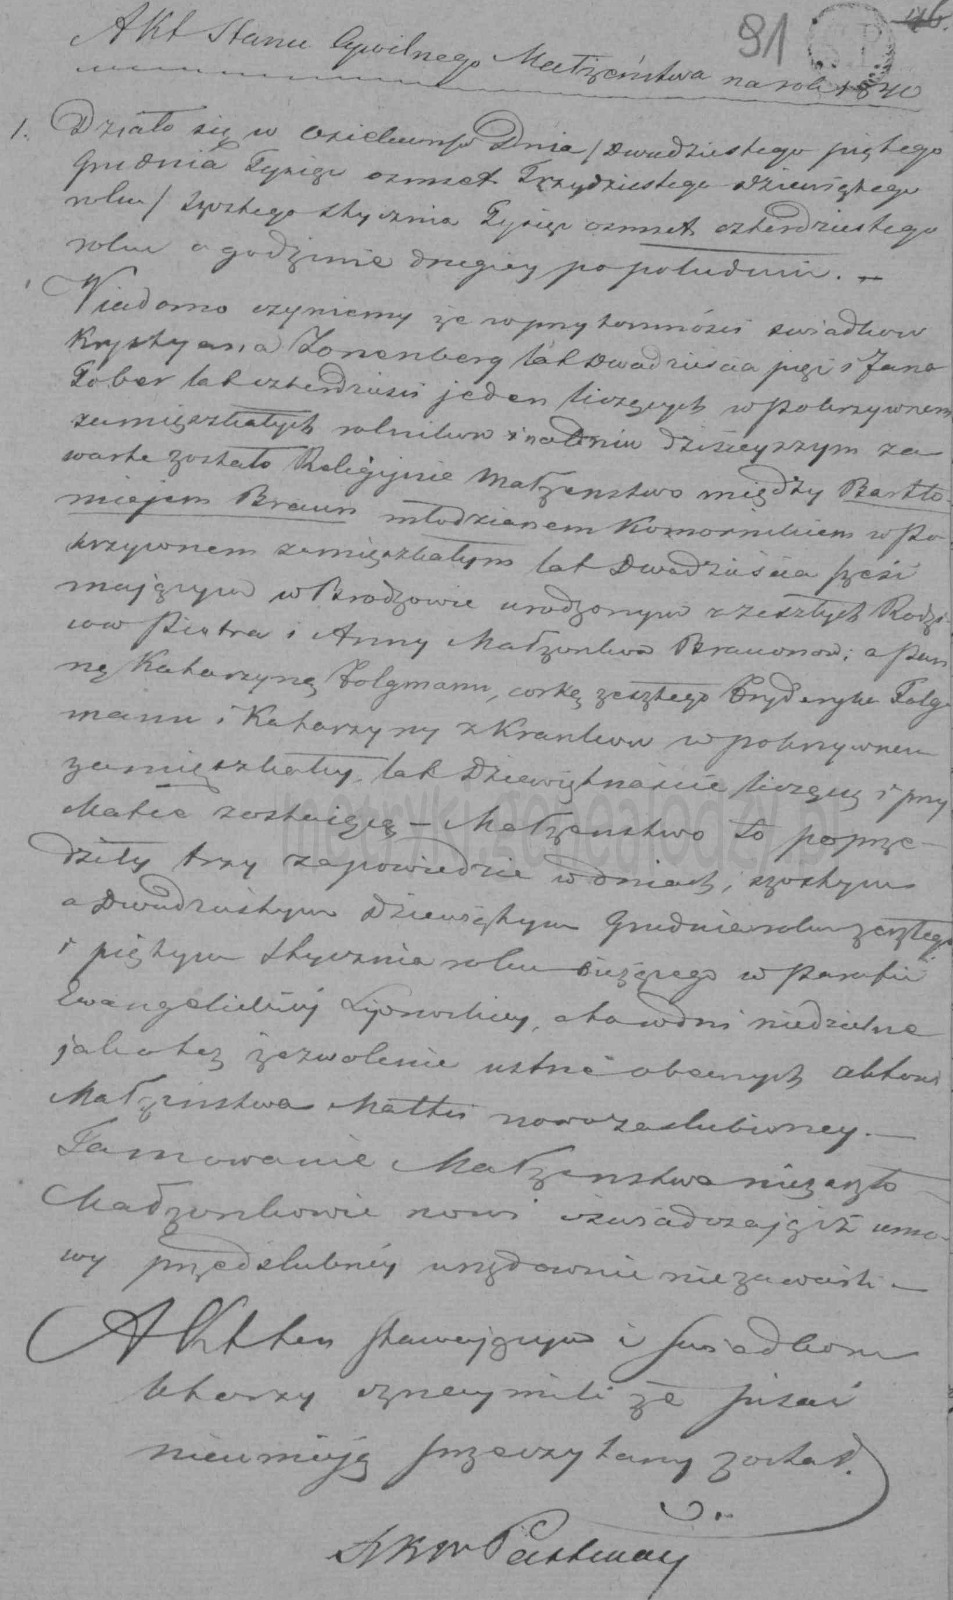 91 46.
Akt Stanu Cywilnego Małżeństwa na rok 1840
1. Działo się w Dnia / dwudziestego piątego
Grudnia Tysiąc osmset Trzydziestego dziewiątego
roku / szostego stycznia Tysiąc osmset czterdziestego
roku o godzinie drugiey popołudniu. –
Wiadomo czyniemy że wprzytomności swiadkow
Krystyana Zonenberg lat dwadziescia pięć i Jana
Tober lat czterdziesci jeden liczących w Pokrzywnem
zamięszkałych rolnikow i na dniu dzisieyszym za
warte zostało Religijnie Małżenstwo między Bartło-
miejem Braun młodzianem Komornikiem w Po
krzywnem zamięszkałym lat Dwadzieścia szesć
mającym w Brodzowie urodzonym z zeszłych Rodzi
cow Piotra i Anny Małżonkow Braunow; a Pan
ną Katarzyną Folgmann, corką zeszłego Fryderyka Folg
mann i Katarzyny z Krankow w Pokrzywnem
zamięszkałą, lat dziewiętnaście liczącą i przy
Matce zostaiącą – Małżenstwo to poprze–
dziły trzy zapowiedzie w dniach, szostym
a Dwudziestym dziewiątym Grudnia roku zeszłego
i piątym stycznia roku bieżącego w Parafii
Ewangelickiey Lipnowskiey, niedzielne
jako też zezwolenie ustne obecnych aktowi
Małżenstwa Matki nowozaslubioney. –
Tamowanie Małżenstwa niezaszło
Małżonkowie nowi oswiadczają iż umo-
wy przedslubnéy urzędownie niezawarli –
Akt ten stawającym i swiadkom
ktorzy oznaymili że pisać
nieumieją przeczytany został.
metryki.genealodzy.pl